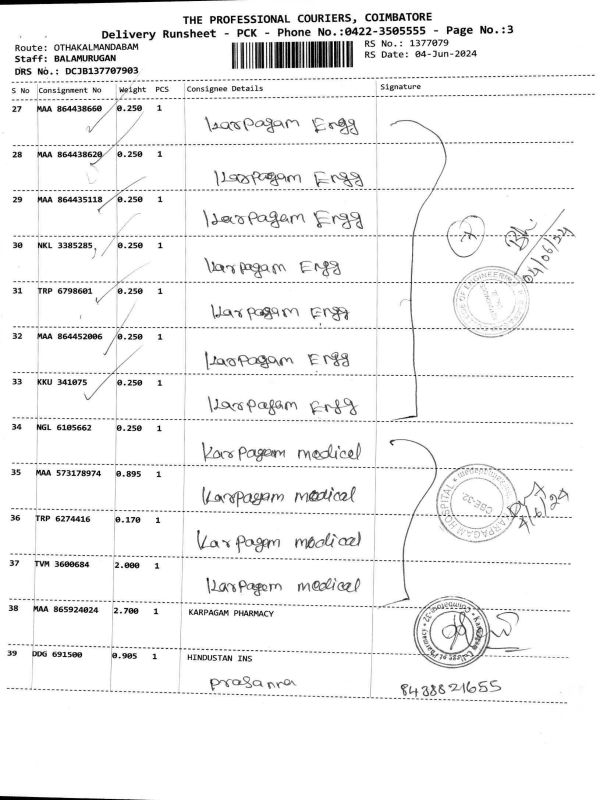 THE PROFESSIONAL COURIERS, COIMBATORE
Delivery Runsheet - PCK - Phone No.:0422-3505555 - Page No.:3
Route: OTHAKALMANDABAM RS No.: 1377079
Staff: BALAMURUGAN RS Date: 04-Jun-2024
DRS No.: DCJB137707903
S No Consignment No Weight PCS Consignee Details Signature
27 MAA 864438660 0.250 1 Karpagam Engg
28 MAA 864438620 0.250 1 Karpagam Engg
29 MAA 864435118 0.250 1 Karpagam Engg
7
04/06/24
30 NKL 3385285 0.250 1 Karpagam Engg
31 TRP 6798601 0.250 1 Karpagam Engg
32 MAA 864452006 0.250 1 Karpagam Engg
33 KKU 341075 0.250 1 Karpagam Engg
34 NGL 6105662 0.250 1 Karpagam medical
35 MAA 573178974 0.895 1 Karpagam medical
KARPAGAM HOSPITAL
CBE-32
4/6/24
36 TRP 6274416 0.170 1 Karpagam medical
37 TVM 3600684 2.000 1 Karpagam medical
38 MAA 865924024 2.700 1 KARPAGAM PHARMACY
39 DDG 691500 0.905 1 HINDUSTAN INS
prasanna 8438821655